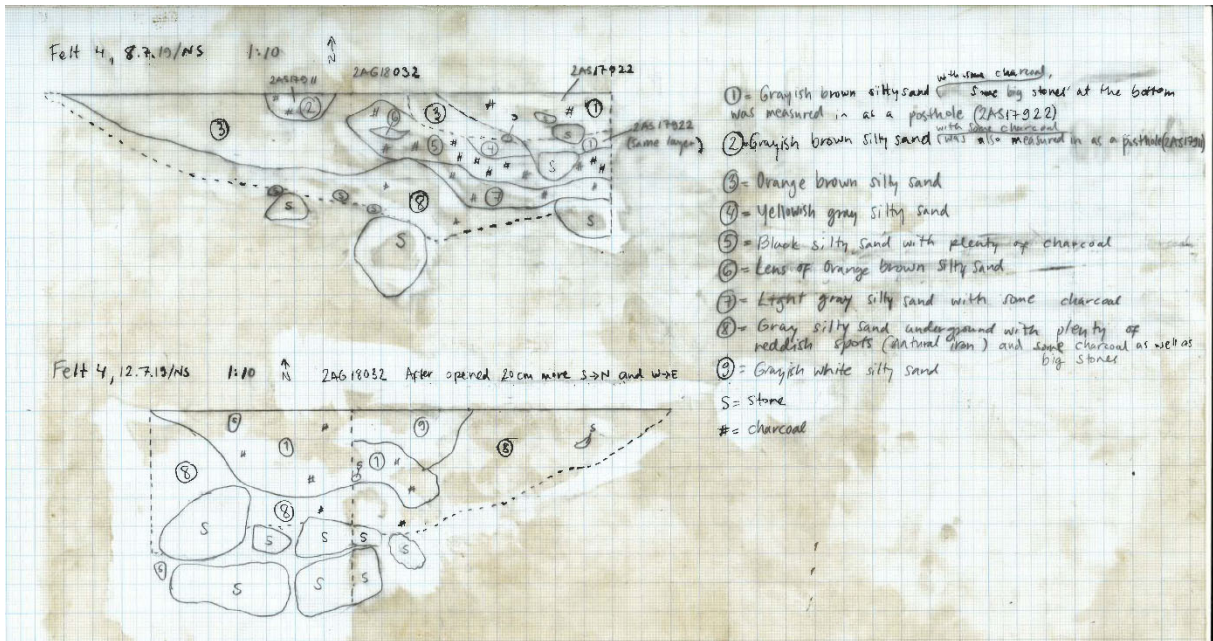 Felt 4, 8.7.19/NS 1:10 N
2AS17911 2AG18032 2AS17922
# ② ⑥ ③ # # ① #
③ ⑤ ④ ① S
2AS17922
(same layer)
⑧ ⑦ S
S S S S S
Felt 4, 12.7.19/NS 1:10 N 2AG18032 After opened 20cm more S→N and W→E
S # ① ⑨ ⑧ S
⑧ # ① #
⑧ # S
S S S S S
S S S S
① = Grayish brown silty sand with some charcoal, Some big stones at the bottom
was measured in as a posthole (2AS17922)
② = Grayish brown silty sand with some charcoal (was also measured in as a posthole (2AS17911)
③ = Orange brown silty sand
④ = Yellowish gray silty sand
⑤ = Black silty sand with plenty of charcoal
⑥ = Lens of Orange brown silty sand
⑦ = Light gray silty sand with some charcoal
⑧ = Gray silty sand underground with plenty of
reddish spots (natural iron) and some charcoal as well as
big stones
⑨ = Grayish white silty sand
S = stone
# = charcoal